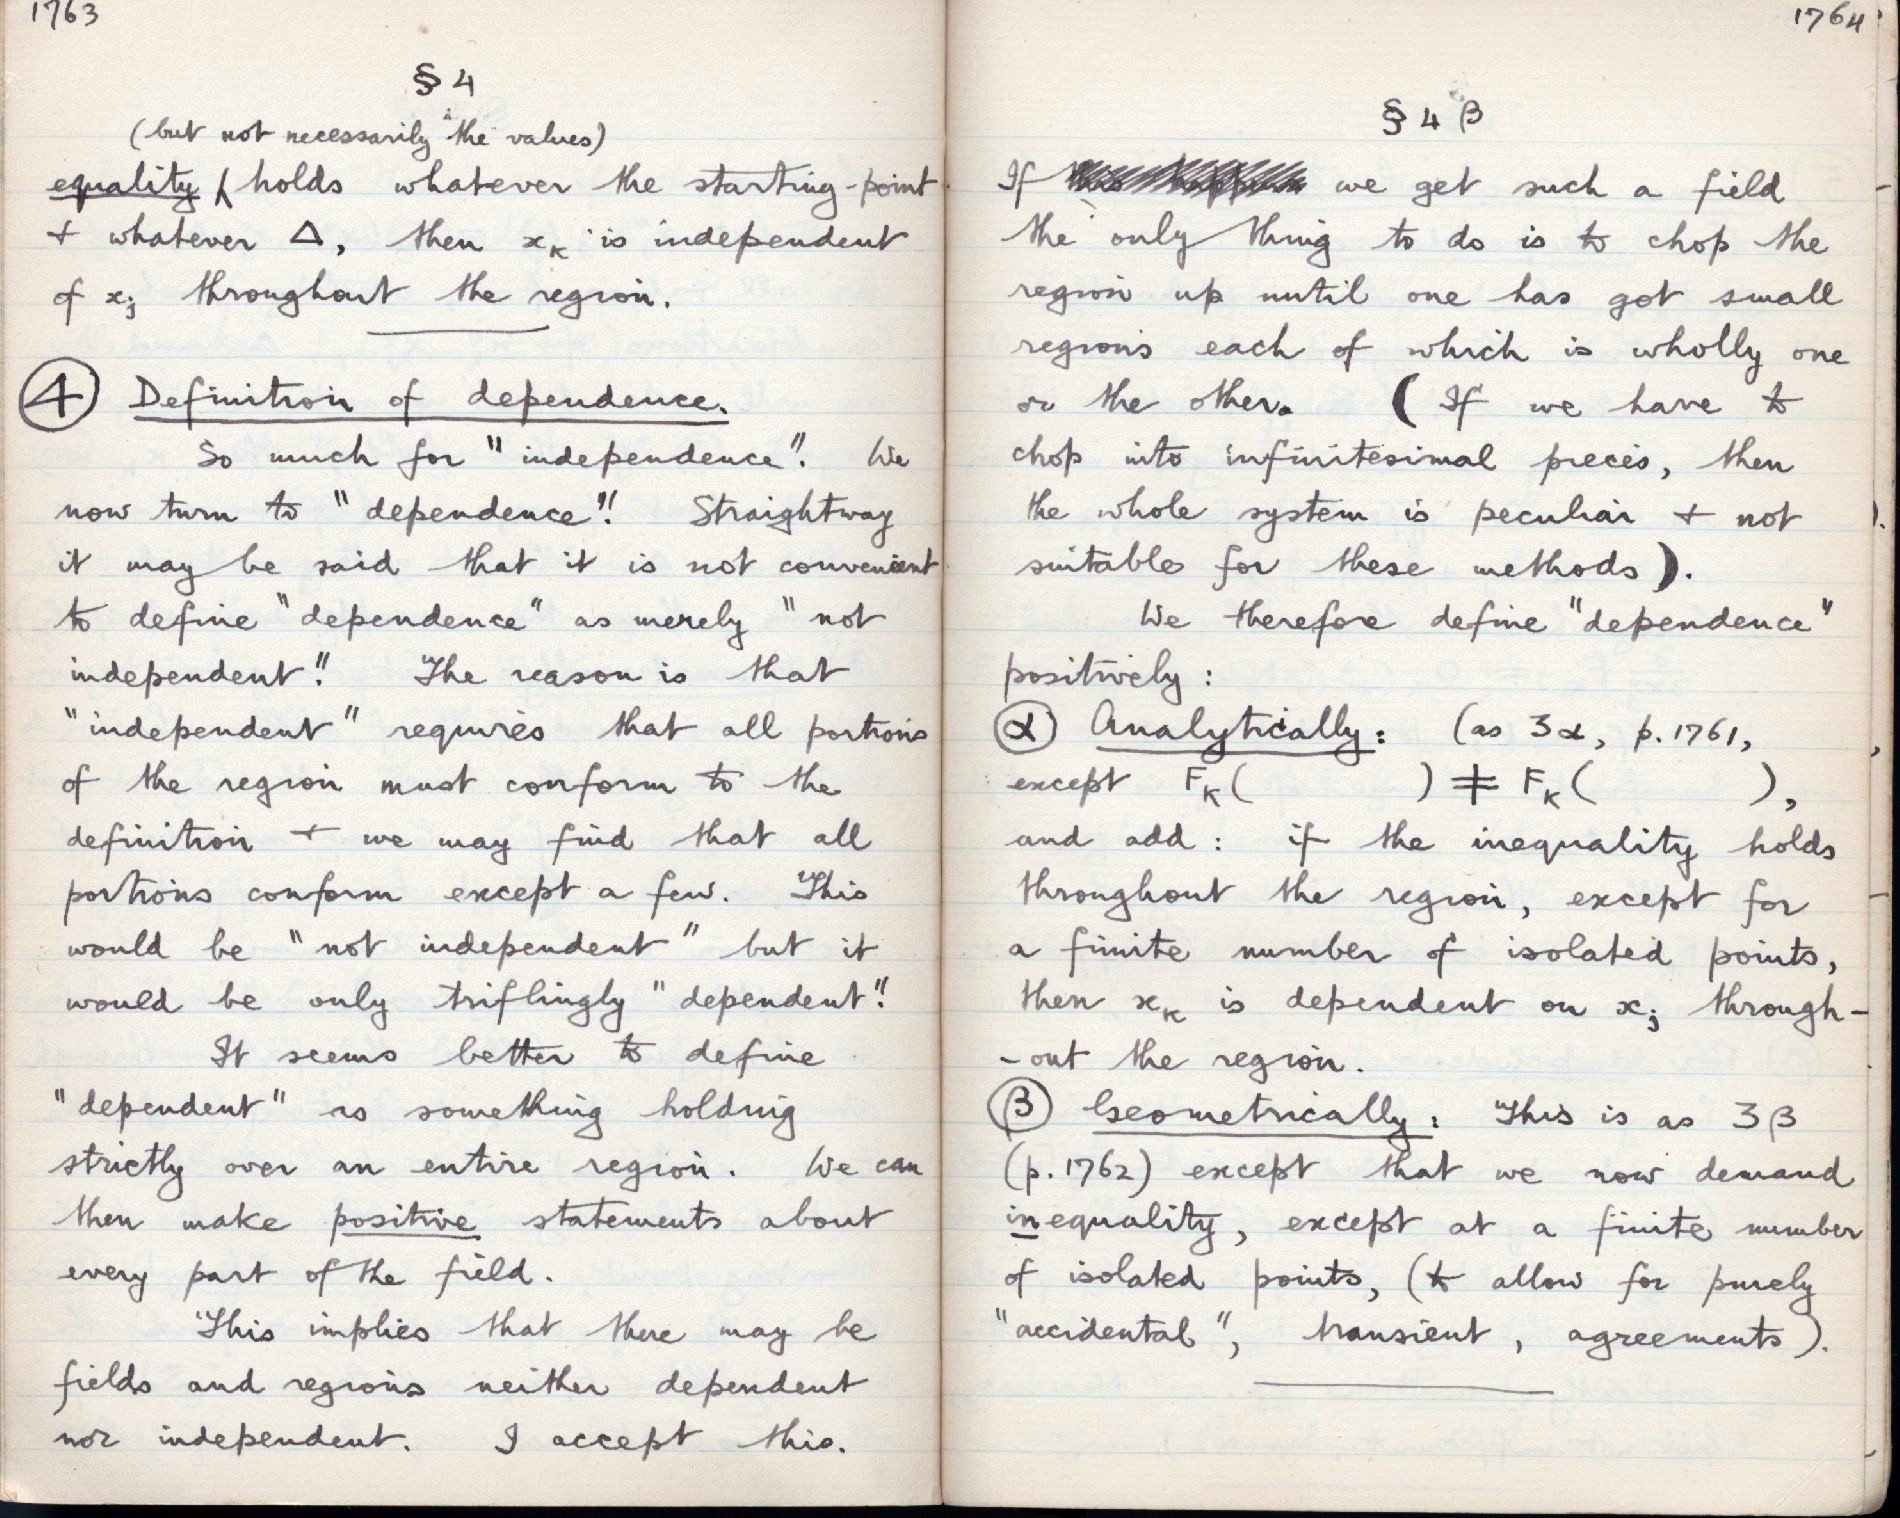 1763
§ 4
(but not necessarily the values)
equality holds whatever the starting-point
+ whatever Δ, then xK is independent
of xj throughout the region.
④ Definition of dependence.
So much for "independence". We
now turn to "dependence". Straightway
it may be said that it is not convenient
to define "dependence" as merely "not
independent". The reason is that
"independent" requires that all portions
of the region must conform to the
definition + we may find that all
portions conform except a few. This
would be "not independent" but it
would be only triflingly "dependent".
It seems better to define
"dependent" as something holding
strictly over an entire region. We can
then make positive statements about
every part of the field.
This implies that there may be
fields and regions neither dependent
nor independent. I accept this.
1764
§ 4 β
If we get such a field
the only thing to do is to chop the
region up until one has got small
regions each of which is wholly one
or the other. (If we have to
chop into infinitesimal pieces, then
the whole system is peculiar + not
suitable for these methods).
We therefore define "dependence"
positively:
(α) Analytically: (as 3α, p.1761,
except FK( ) ≠ FK( ),
and add: if the inequality holds
throughout the region, except for
a finite number of isolated points,
then xK is dependent on xj through-
-out the region.
(β) Geometrically: This is as 3β
(p.1762) except that we now demand
inequality, except at a finite number
of isolated points, (to allow for purely
"accidental", transient, agreements).